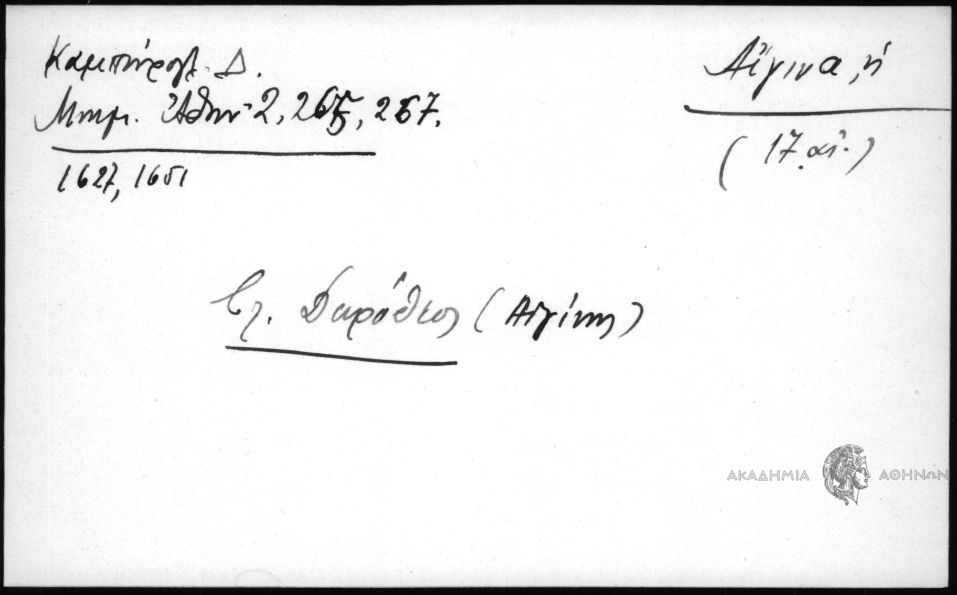 Καμπούρογλ. Δ.
Μνημ. Ἀθην. 2, 265, 267.
1627, 1651
Αἴγινα, ἡ
(17. αἰ.)
Βλ. Δωρόθεος (Αἰγίνης)
ΑΚΑΔΗΜΙΑ ΑΘΗΝΩΝ